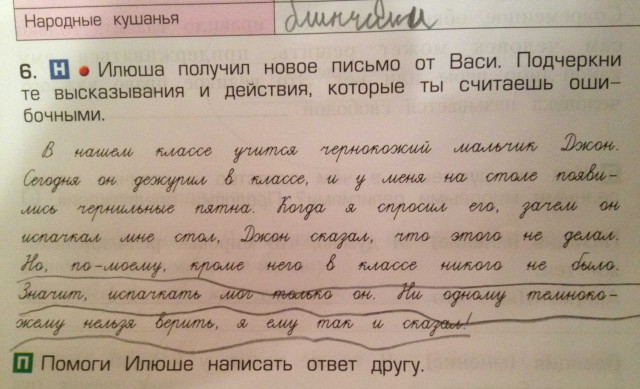 Народные кушанья блинчики
6. Н Илюша получил новое письмо от Васи. Подчеркни
те высказывания и действия, которые ты считаешь оши-
бочными.
В нашем классе учится чернокожий мальчик Джон.
Сегодня он дежурил в классе, и у меня на столе появи-
лись чернильные пятна. Когда я спросил его, зачем он
испачкал мне стол, Джон сказал, что этого не делал.
Но, по-моему, кроме него в классе никого не было.
Значит, испачкать мог только он. Ни одному темноко-
жему нельзя верить, я ему так и сказал!
П Помоги Илюше написать ответ другу.